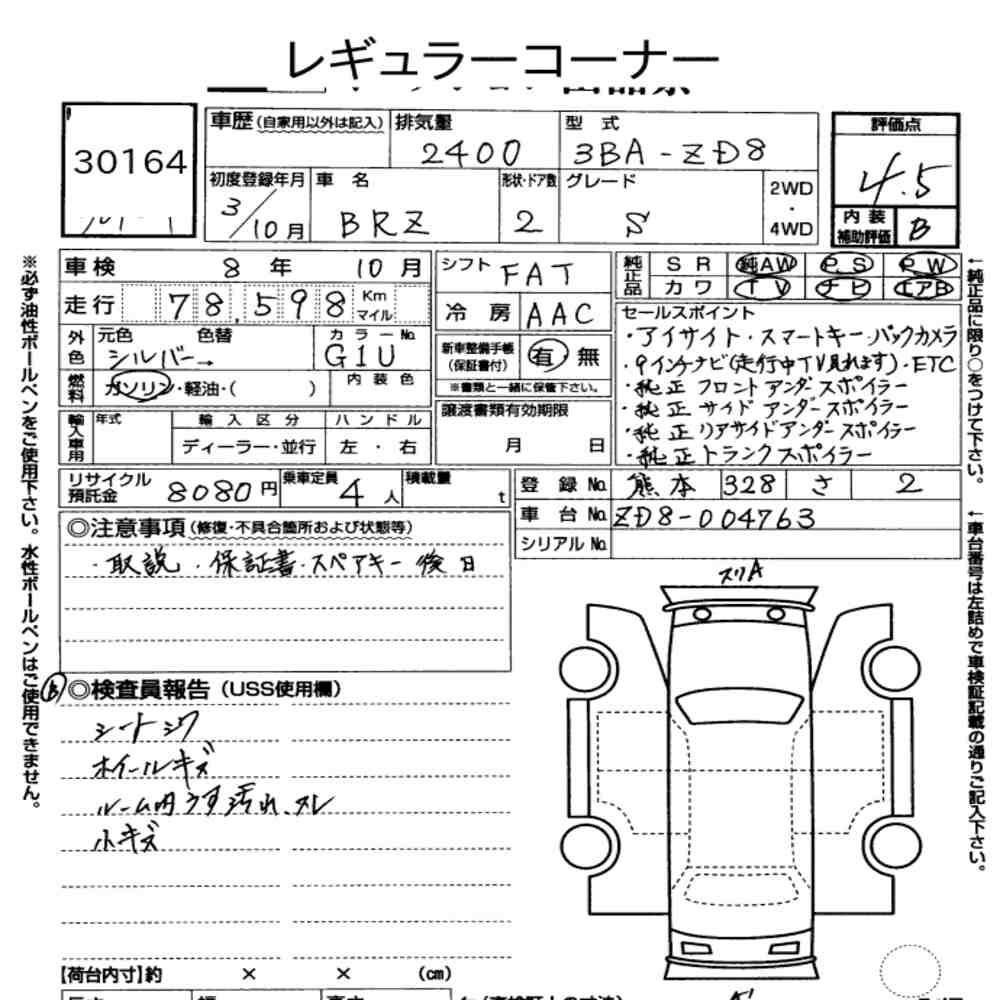 レギュラーコーナー
30164
車歴 (自家用以外は記入)
排気量
2400
型 式
3BA-ZD8
評価点
4.5
内装
補助評価
B
初度登録年月
3/10月
車 名
BRZ
形状・ドア数
2
グレード
S
2WD
・
4WD
車検 8年 10月
走行 78,598 Km マイル
シフト FAT
冷房 AAC
純正品 SR 純AW P.S P.W
カワ TV ナビ エアB
外色 元色 色替 カラーNo.
シルバー→ G1U
燃料 ガソリン・軽油・( ) 内装色
新車整備手帳
(保証書付)
有・無
※書類と一緒に保管下さい。
セールスポイント
・アイサイト・スマートキー・バックカメラ
・9インチナビ(走行中TV見れます)・ETC
・純正フロントアンダースポイラー
・純正サイドアンダースポイラー
・純正リアサイドアンダースポイラー
・純正トランクスポイラー
輸入車用 年式 輸入区分 ハンドル
ディーラー・並行 左・右
譲渡書類有効期限
月 日
リサイクル
預託金
8080円
乗車定員
4人
積載量
t
登録No. 熊本 328 さ 2
車台No. ZD8-004763
シリアルNo.
◎注意事項 (修復・不具合箇所および状態等)
・取説・保証書・スペアキー後日
スリA
◎検査員報告 (USS使用欄)
シートシワ
ホイールキズ
ルーム内うす汚れ、スレ
小キズ
【荷台内寸】約 × × (cm)
※必ず油性ボールペンをご使用下さい。水性ボールペンはご使用できません。
←純正品に限り○をつけて下さい。
←車台番号は左詰めで車検証記載の通りご記入下さい。